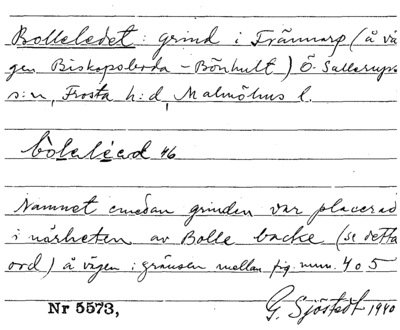 Bolleledet: grind i Trännarp (å vä
gen Biskopsboda - Bönhult) Ö. Sallerups
s:n, Frosta h:d, Malmöhus l.
bòlaléad 46
Namnet emedan grinden var placerad
i närheten av Bolle backe (se detta
ord) å vägen i gränsen mellan fig. num. 4 o 5
Nr 5573, G. Sjöstedt 1940